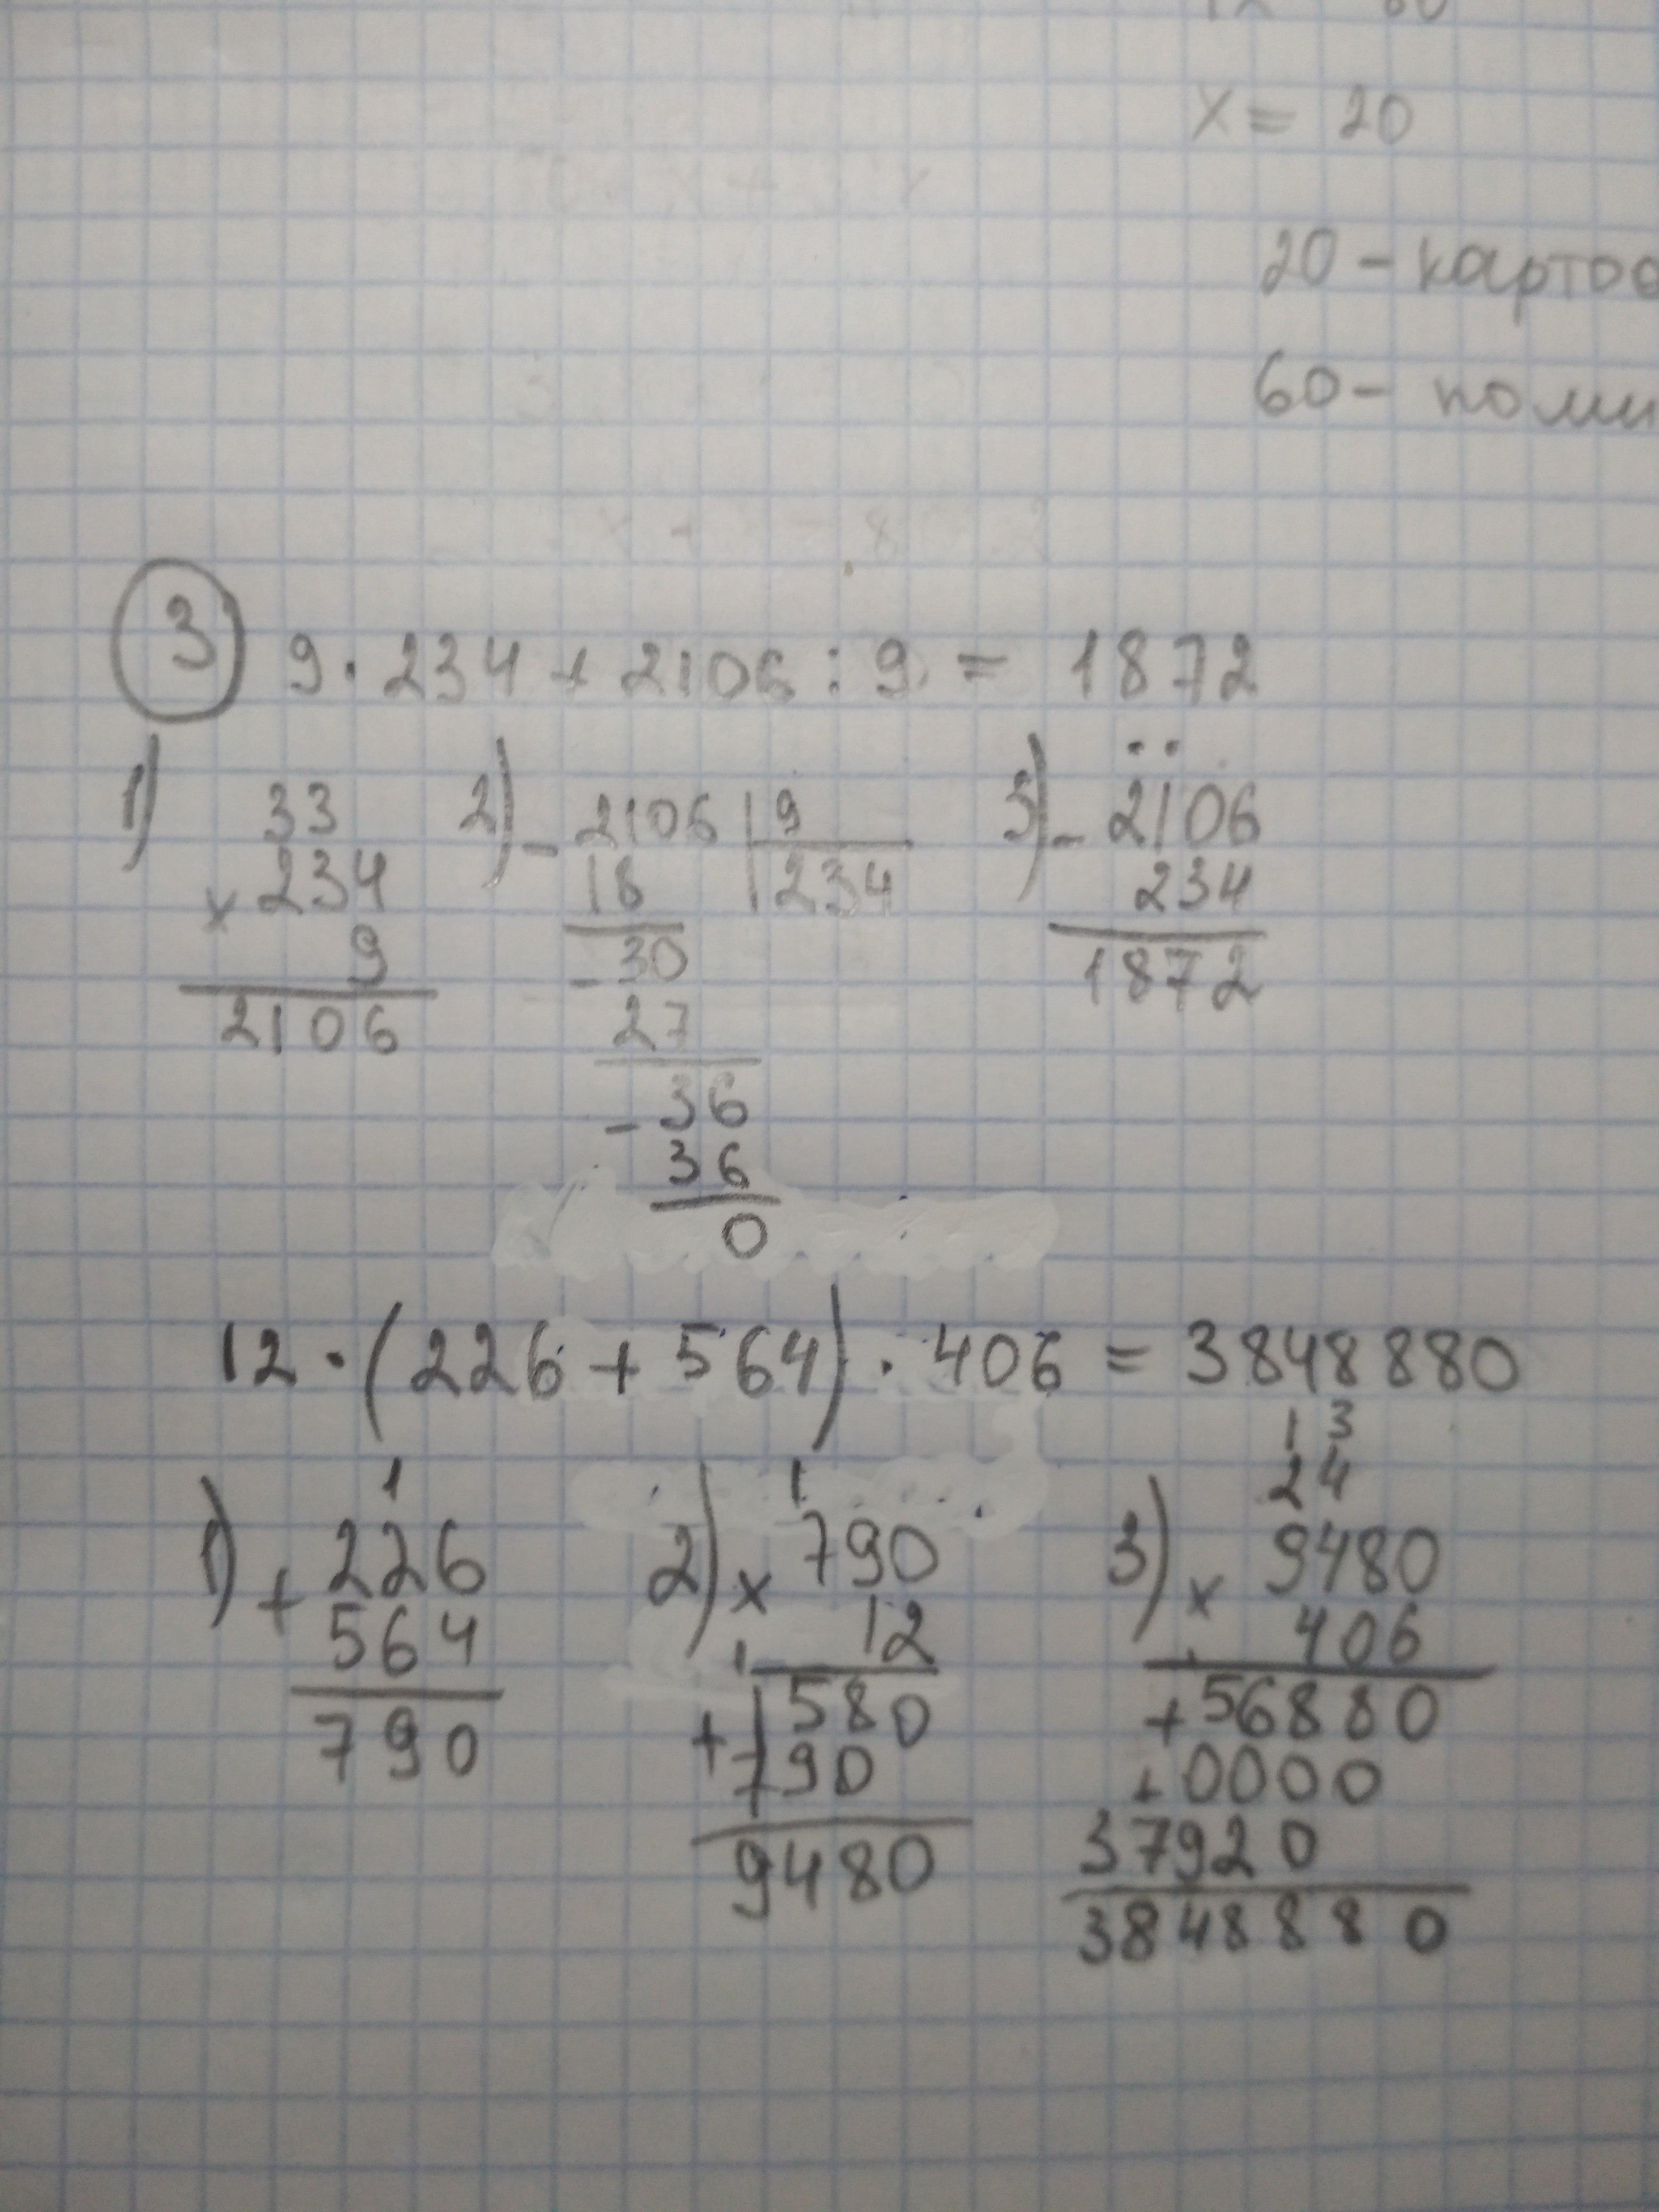 x = 20
20 - картоп
60 - поми
3 9 · 234 + 2106 : 9 = 1872
1) 2) 3)
33
× 234
9
2106
- 2106 | 9
18 | 234
- 30
27
- 36
36
0
- 2106
234
1872
12 · (226 + 564) · 406 = 3848880
1)
1
+ 226
564
790
2)
1
× 790
12
1
+ 1580
790
9480
3)
1 3
2 4
× 9480
406
+ 56880
+ 0000
37920
3848880